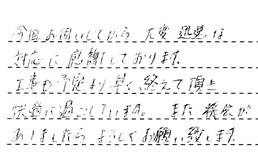 今回お伺いしてから 大変 迅速な
対応に 感謝しております。
工事も予定より 早く 終えて 頂き
快適に過ごしています。 また 機会が
ありましたら よろしくお願い致します。